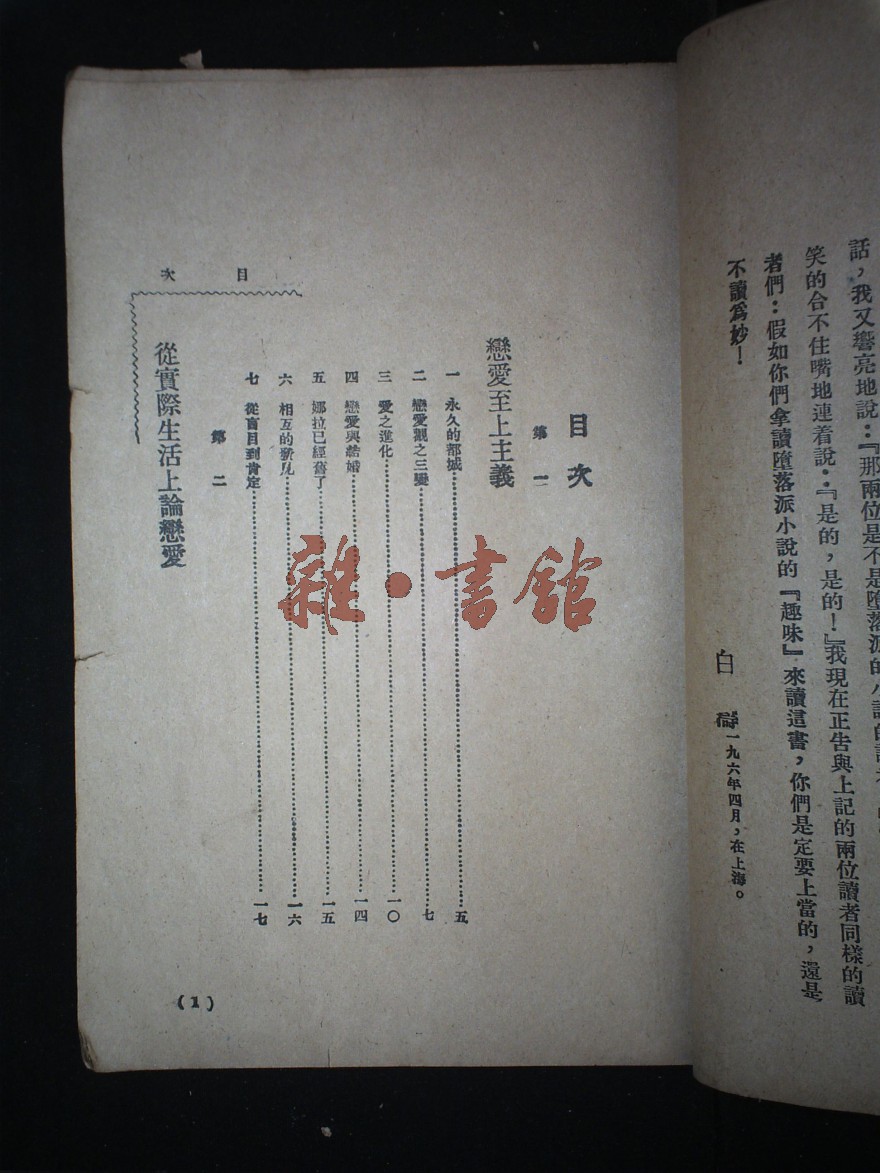 話，我又響亮地說：『那兩位是不是墮落派的小說的讀者
笑的合不住嘴地連着說：『是的，是的！』我現在正告與上記的兩位讀者同樣的讀
者們：假如你們拿讀墮落派小說的『趣味』來讀這書，你們是定要上當的，還是
不讀爲妙！
白
一九六年四月，在上海。
目次
第一
戀愛至上主義
一 永久的都城 五
二 戀愛觀之三變 七
三 愛之進化 一〇
四 戀愛與結婚 一四
五 娜拉已經舊了 一五
六 相互的發見 一六
七 從盲目到肯定 一七
第二
從實際生活上論戀愛
目次
(1)
雜·書館